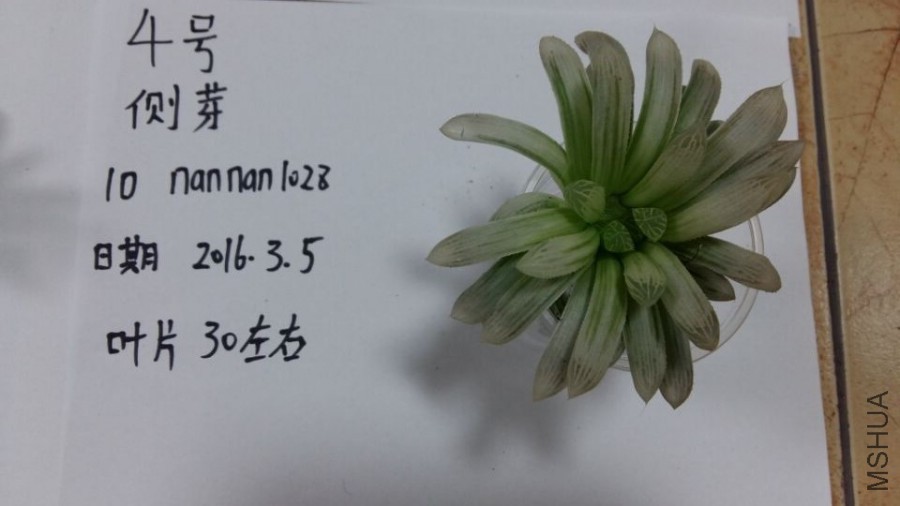 4号
侧芽
ID nannan1028
日期 2016.3.5
叶片 30左右
MSHUA